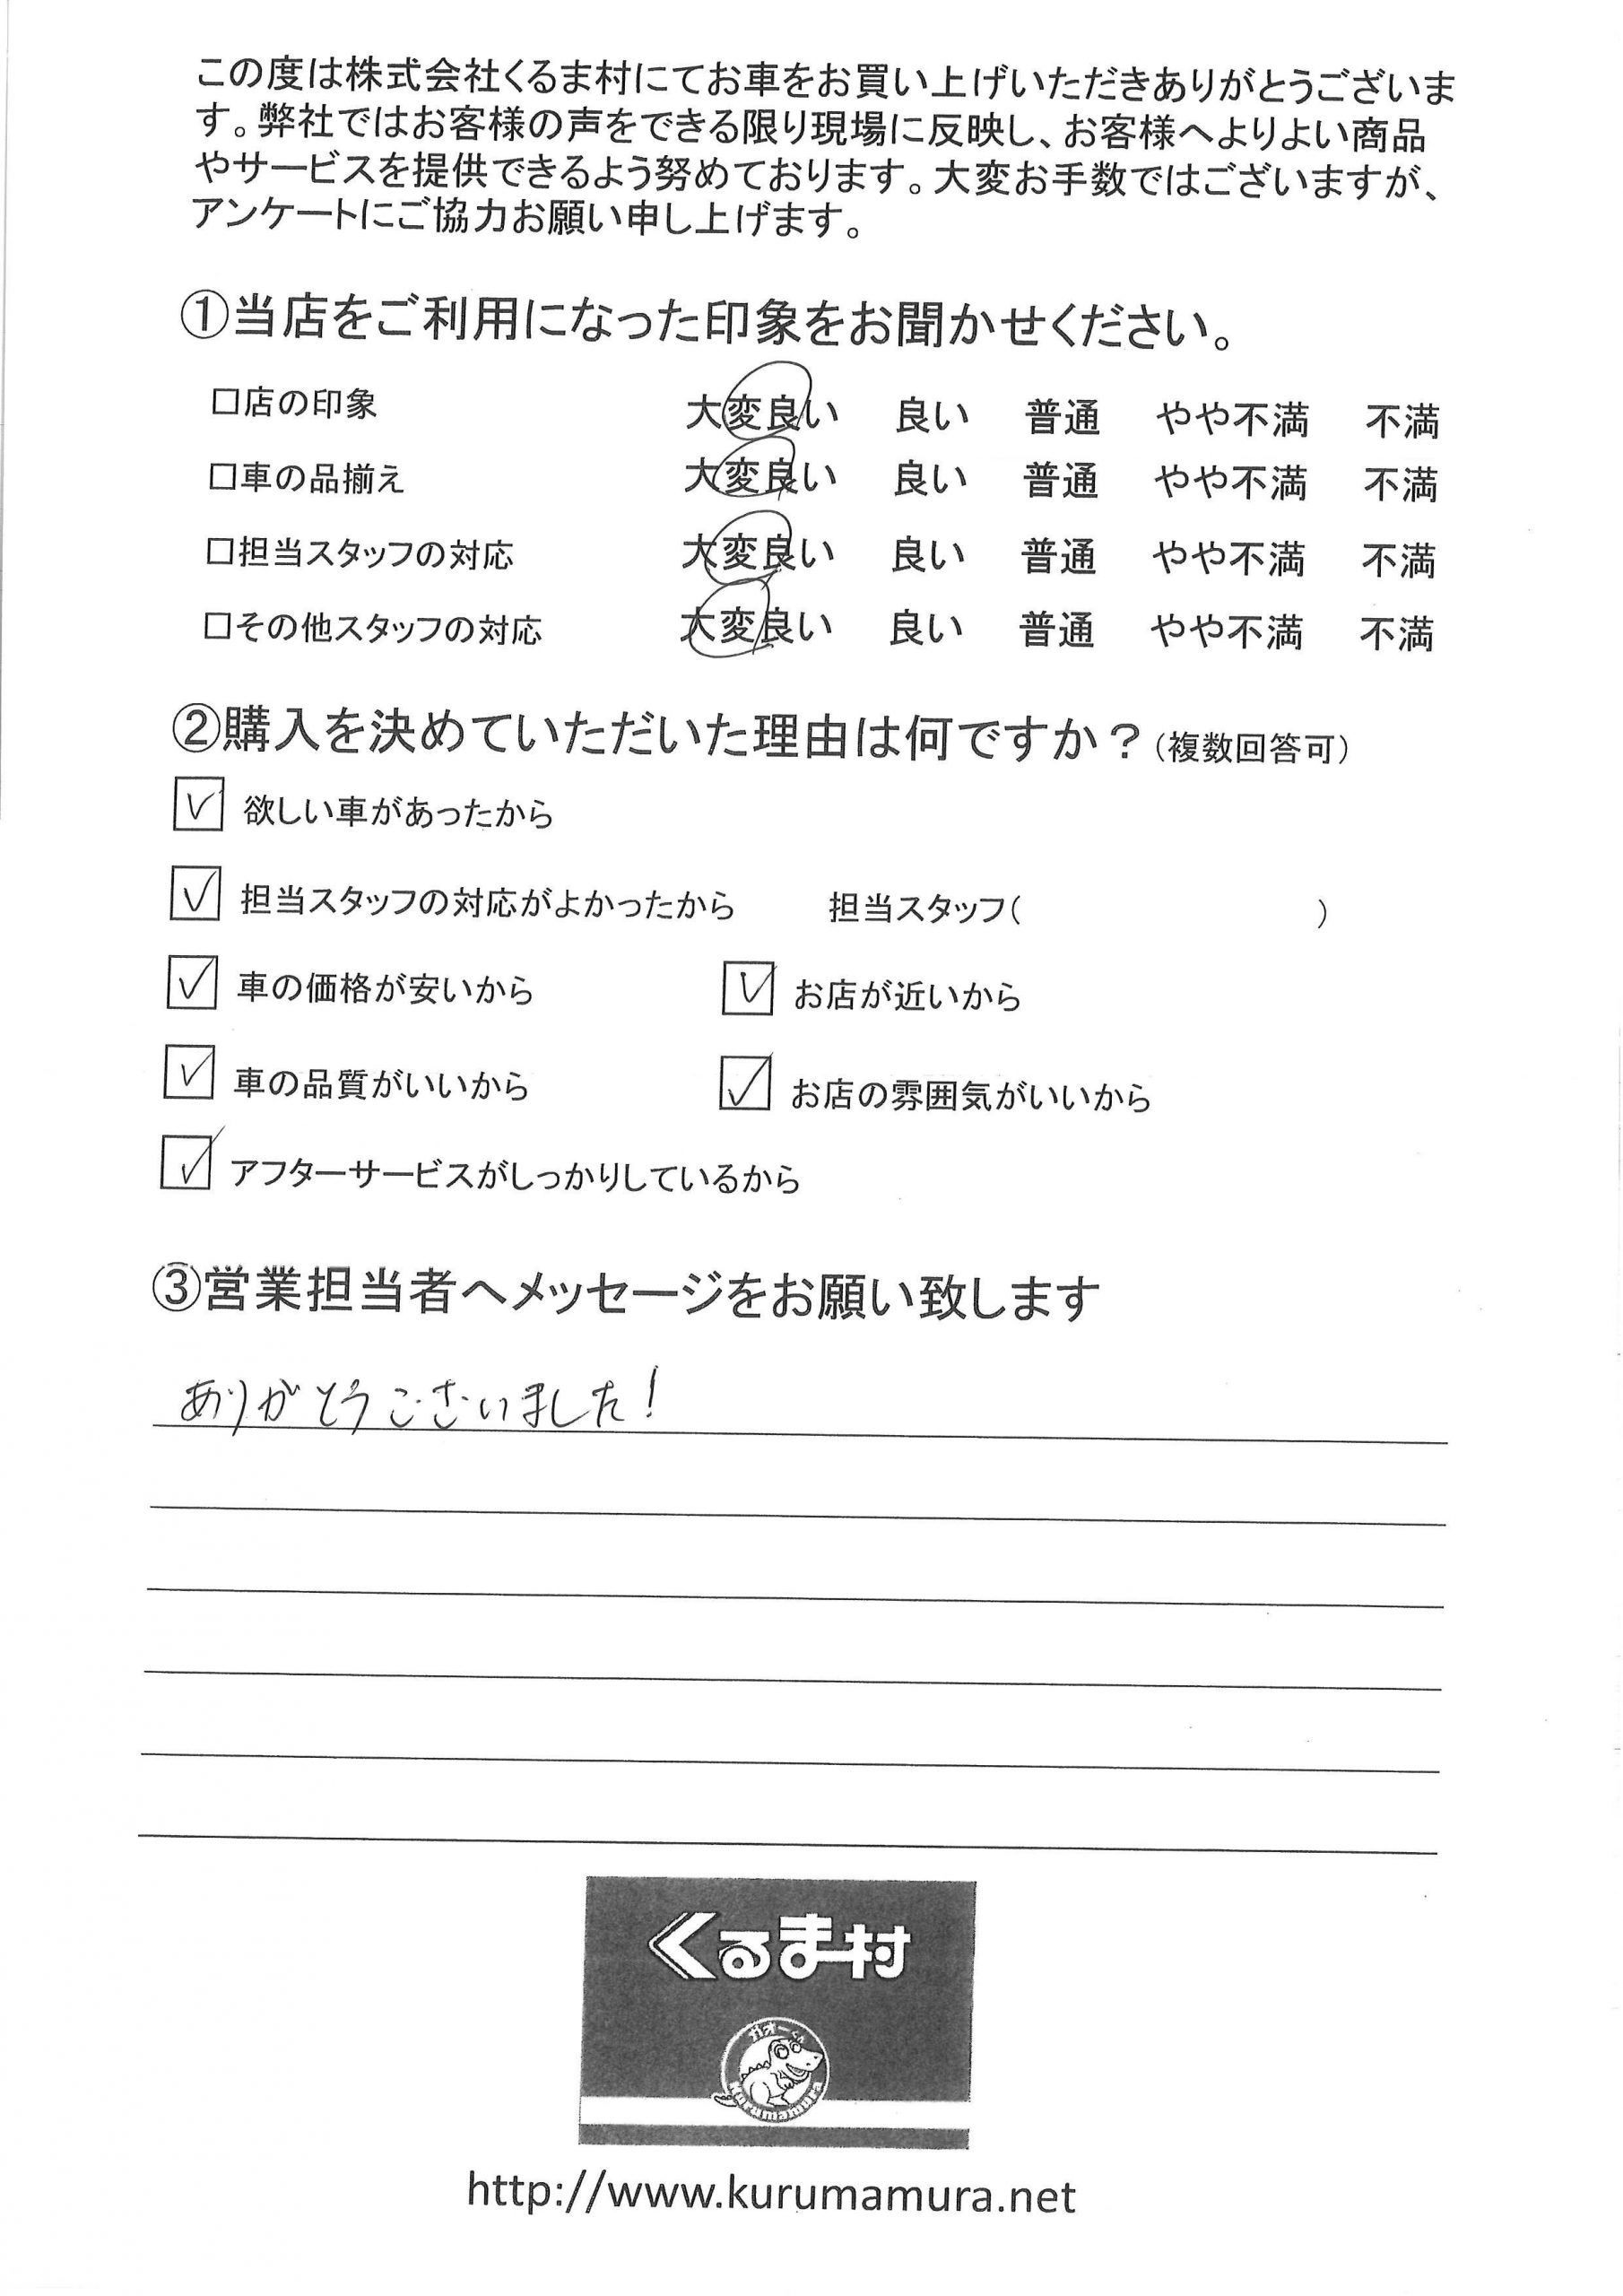 この度は株式会社くるま村にてお車をお買い上げいただきありがとうございま
す。弊社ではお客様の声をできる限り現場に反映し、お客様へよりよい商品
やサービスを提供できるよう努めております。大変お手数ではございますが、
アンケートにご協力お願い申し上げます。
①当店をご利用になった印象をお聞かせください。
□店の印象 大変良い 良い 普通 やや不満 不満
□車の品揃え 大変良い 良い 普通 やや不満 不満
□担当スタッフの対応 大変良い 良い 普通 やや不満 不満
□その他スタッフの対応 大変良い 良い 普通 やや不満 不満
②購入を決めていただいた理由は何ですか？（複数回答可）
☑ 欲しい車があったから
☑ 担当スタッフの対応がよかったから 担当スタッフ（ ）
☑ 車の価格が安いから ☑ お店が近いから
☑ 車の品質がいいから ☑ お店の雰囲気がいいから
☑ アフターサービスがしっかりしているから
③営業担当者へメッセージをお願い致します
ありがとうございました！
くるま村
ガオーくん
Kurumamura
http://www.kurumamura.net